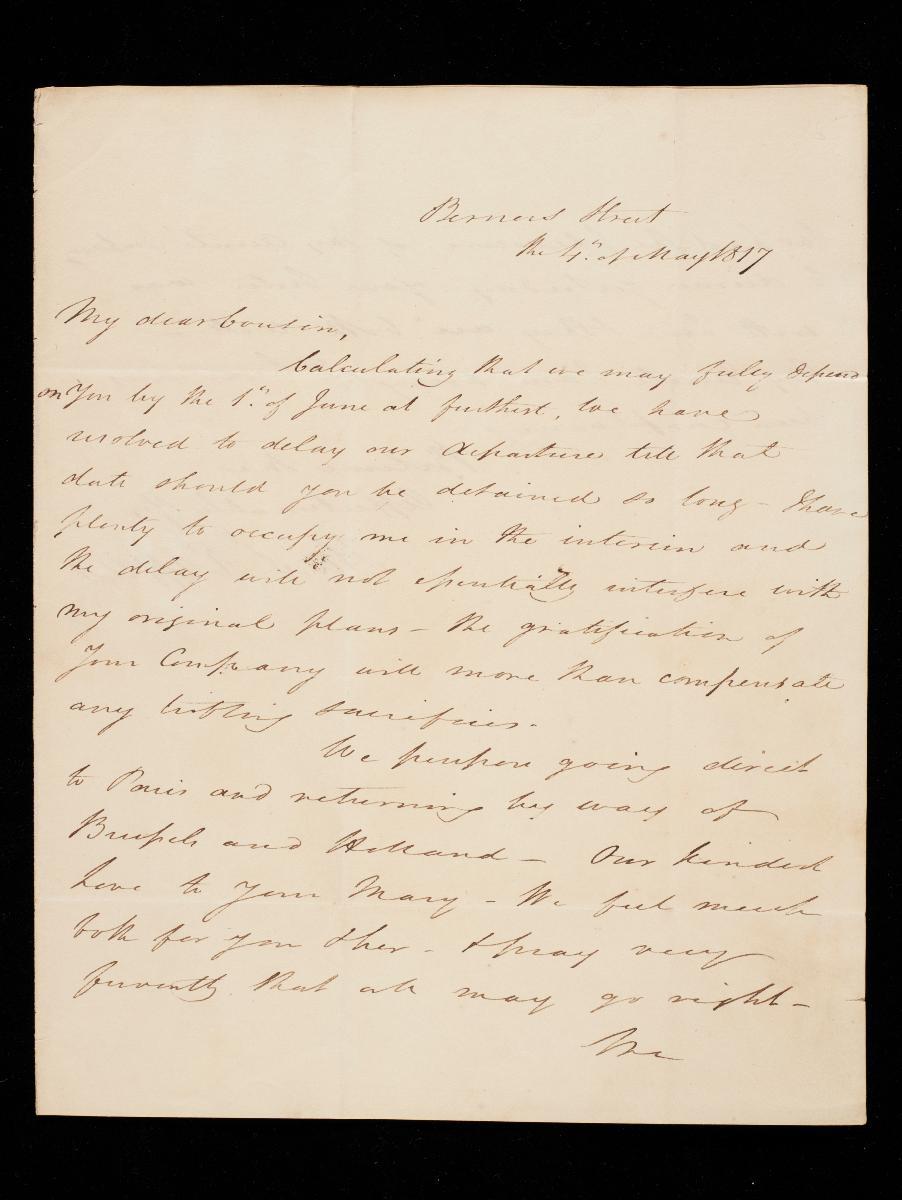 Berners Street
the 4th. of May 1817
My dear Cousin,
Calculating that we may fully depend
on You by the 1st. of June at furthest, We have
resolved to delay our departure till that
date should you be detained so long - I have
plenty to occupy me in the interim and
the delay will not essentially interfere with
my original plans - the gratification of
Your Company will more than compensate
any trifling sacrifices.
We purpose going direct
to Paris and returning by way of
Brussels and Holland - Our kindest
Love to Your Mary - We feel much
both for You & her - & pray very
fervently that all may go right -
We